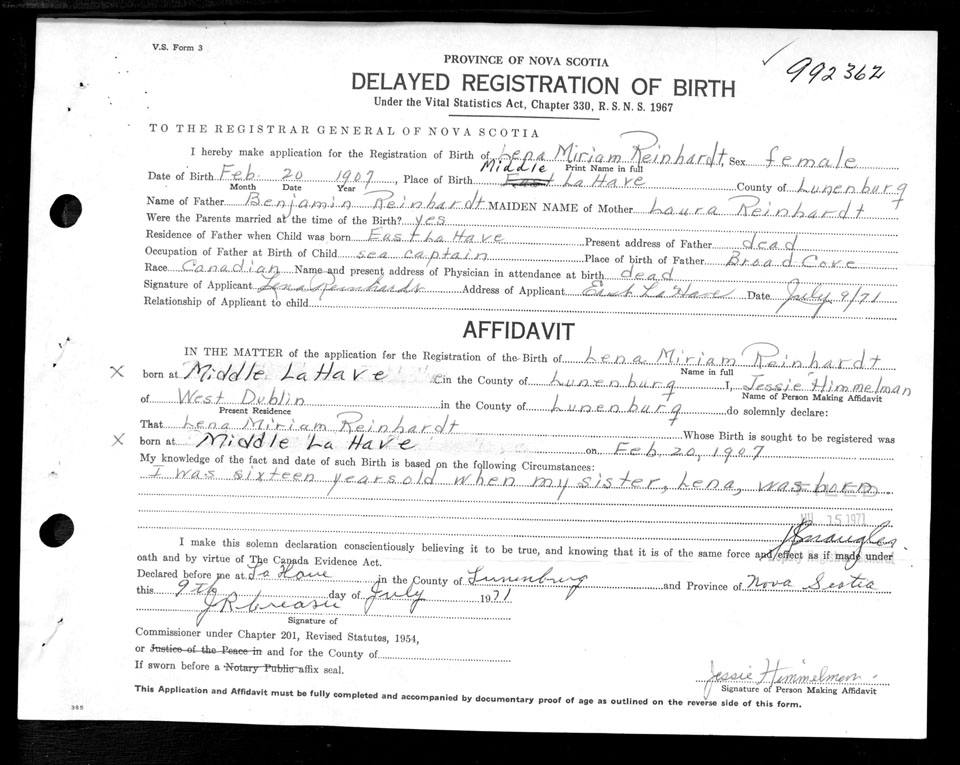 V.S. Form 3
PROVINCE OF NOVA SCOTIA
992362
DELAYED REGISTRATION OF BIRTH
Under the Vital Statistics Act, Chapter 330, R.S.N.S. 1967
TO THE REGISTRAR GENERAL OF NOVA SCOTIA
I hereby make application for the Registration of Birth of Lena Miriam Reinhardt, Sex female
Print Name in full
Date of Birth Feb. 20 1907, Place of Birth Middle East LaHave County of Lunenburg
Month Date Year
Name of Father Benjamin Reinhardt MAIDEN NAME of Mother Laura Reinhardt
Were the Parents married at the time of the Birth? yes
Residence of Father when Child was born East LaHave Present address of Father dead
Occupation of Father at Birth of Child sea captain Place of birth of Father Broad Cove
Race Canadian Name and present address of Physician in attendance at birth dead
Signature of Applicant Lena Reinhardt Address of Applicant East LaHave Date July 9/71
Relationship of Applicant to child
AFFIDAVIT
IN THE MATTER of the application for the Registration of the Birth of Lena Miriam Reinhardt
Name in full
X born at Middle LaHave in the County of Lunenburg I, Jessie Himmelman
Name of Person Making Affidavit
of West Dublin in the County of Lunenburg do solemnly declare:
Present Residence
That Lena Miriam Reinhardt Whose Birth is sought to be registered was
X born at Middle La Have on Feb 20, 1907
My knowledge of the fact and date of such Birth is based on the following Circumstances:
I was sixteen years old when my sister, Lena, was born.
15 1971
I make this solemn declaration conscientiously believing it to be true, and knowing that it is of the same force and effect as if made under
oath and by virtue of The Canada Evidence Act.
Declared before me at La Have in the County of Lunenburg and Province of Nova Scotia
this 9th day of July 1971
J R Creaser
Signature of
Commissioner under Chapter 201, Revised Statutes, 1954,
or Justice of the Peace in and for the County of
If sworn before a Notary Public affix seal.
Jessie Himmelman
Signature of Person Making Affidavit
This Application and Affidavit must be fully completed and accompanied by documentary proof of age as outlined on the reverse side of this form.
385